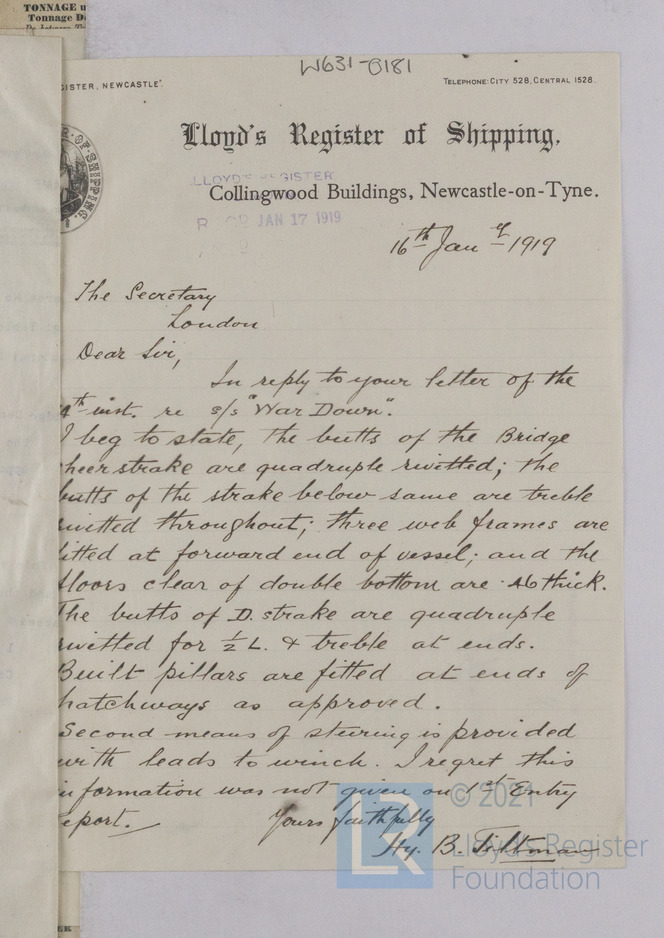 TONNAGE
Tonnage
W631-0181
GISTER, NEWCASTLE".
TELEPHONE: CITY 528, CENTRAL 1528.
Lloyd's Register of Shipping,
LLOYD'S REGISTER
Collingwood Buildings, Newcastle-on-Tyne.
JAN 17 1919
16th Jany 1919
The Secretary
London
Dear Sir,
In reply to your letter of the
4th inst. re s/s "War Down".
I beg to state, the butts of the Bridge
heerstrake are quadruple rivetted; the
butts of the strake below same are treble
ivetted throughout; three web frames are
itted at forward end of vessel; and the
floors clear of double bottom are .46 thick.
The butts of D. strake are quadruple
ivetted for ½ L. & treble at ends.
Built pillars are fitted at ends of
hatchways as approved.
Second means of steering is provided
with leads to winch. I regret this
information was not given on 1st Entry
eport.
Yours faithfully
Hy. B. Tiltman
© 2021
LR
Lloyd's Register
Foundation